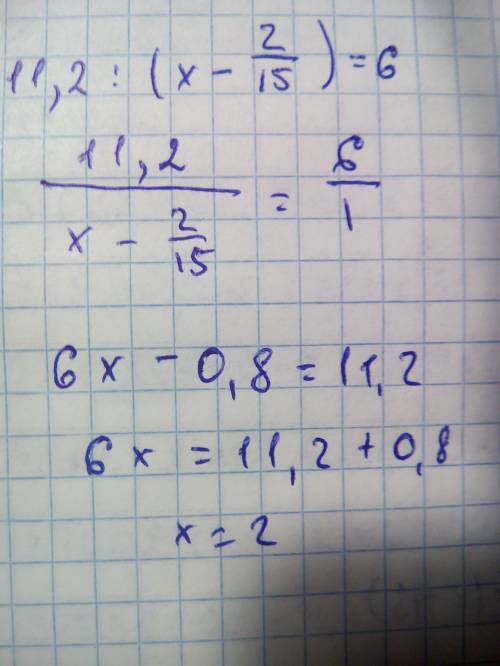 11,2 : (x - 2/15) = 6
11,2 / (x - 2/15) = 6/1
6x - 0,8 = 11,2
6x = 11,2 + 0,8
x = 2